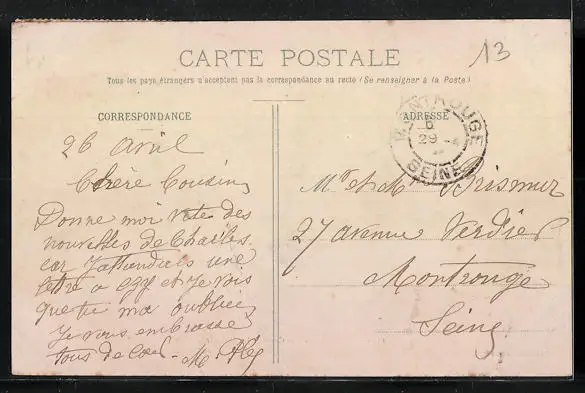 CARTE POSTALE
13
Tous les pays étrangers n'acceptent pas la correspondance au recto (Se renseigner à la Poste)
CORRESPONDANCE
ADRESSE
MONTROUGE
6
29 -4
SEINE
26 avril
Chère Cousin
Donne moi vite des
nouvelles de Charles
car J'attendais une
lettre a et Je vois
que tu ma oublié
Je vous embrasse
tous de Cœur - M
Mr et M
27 avenue Verdier
Montrouge
Seine